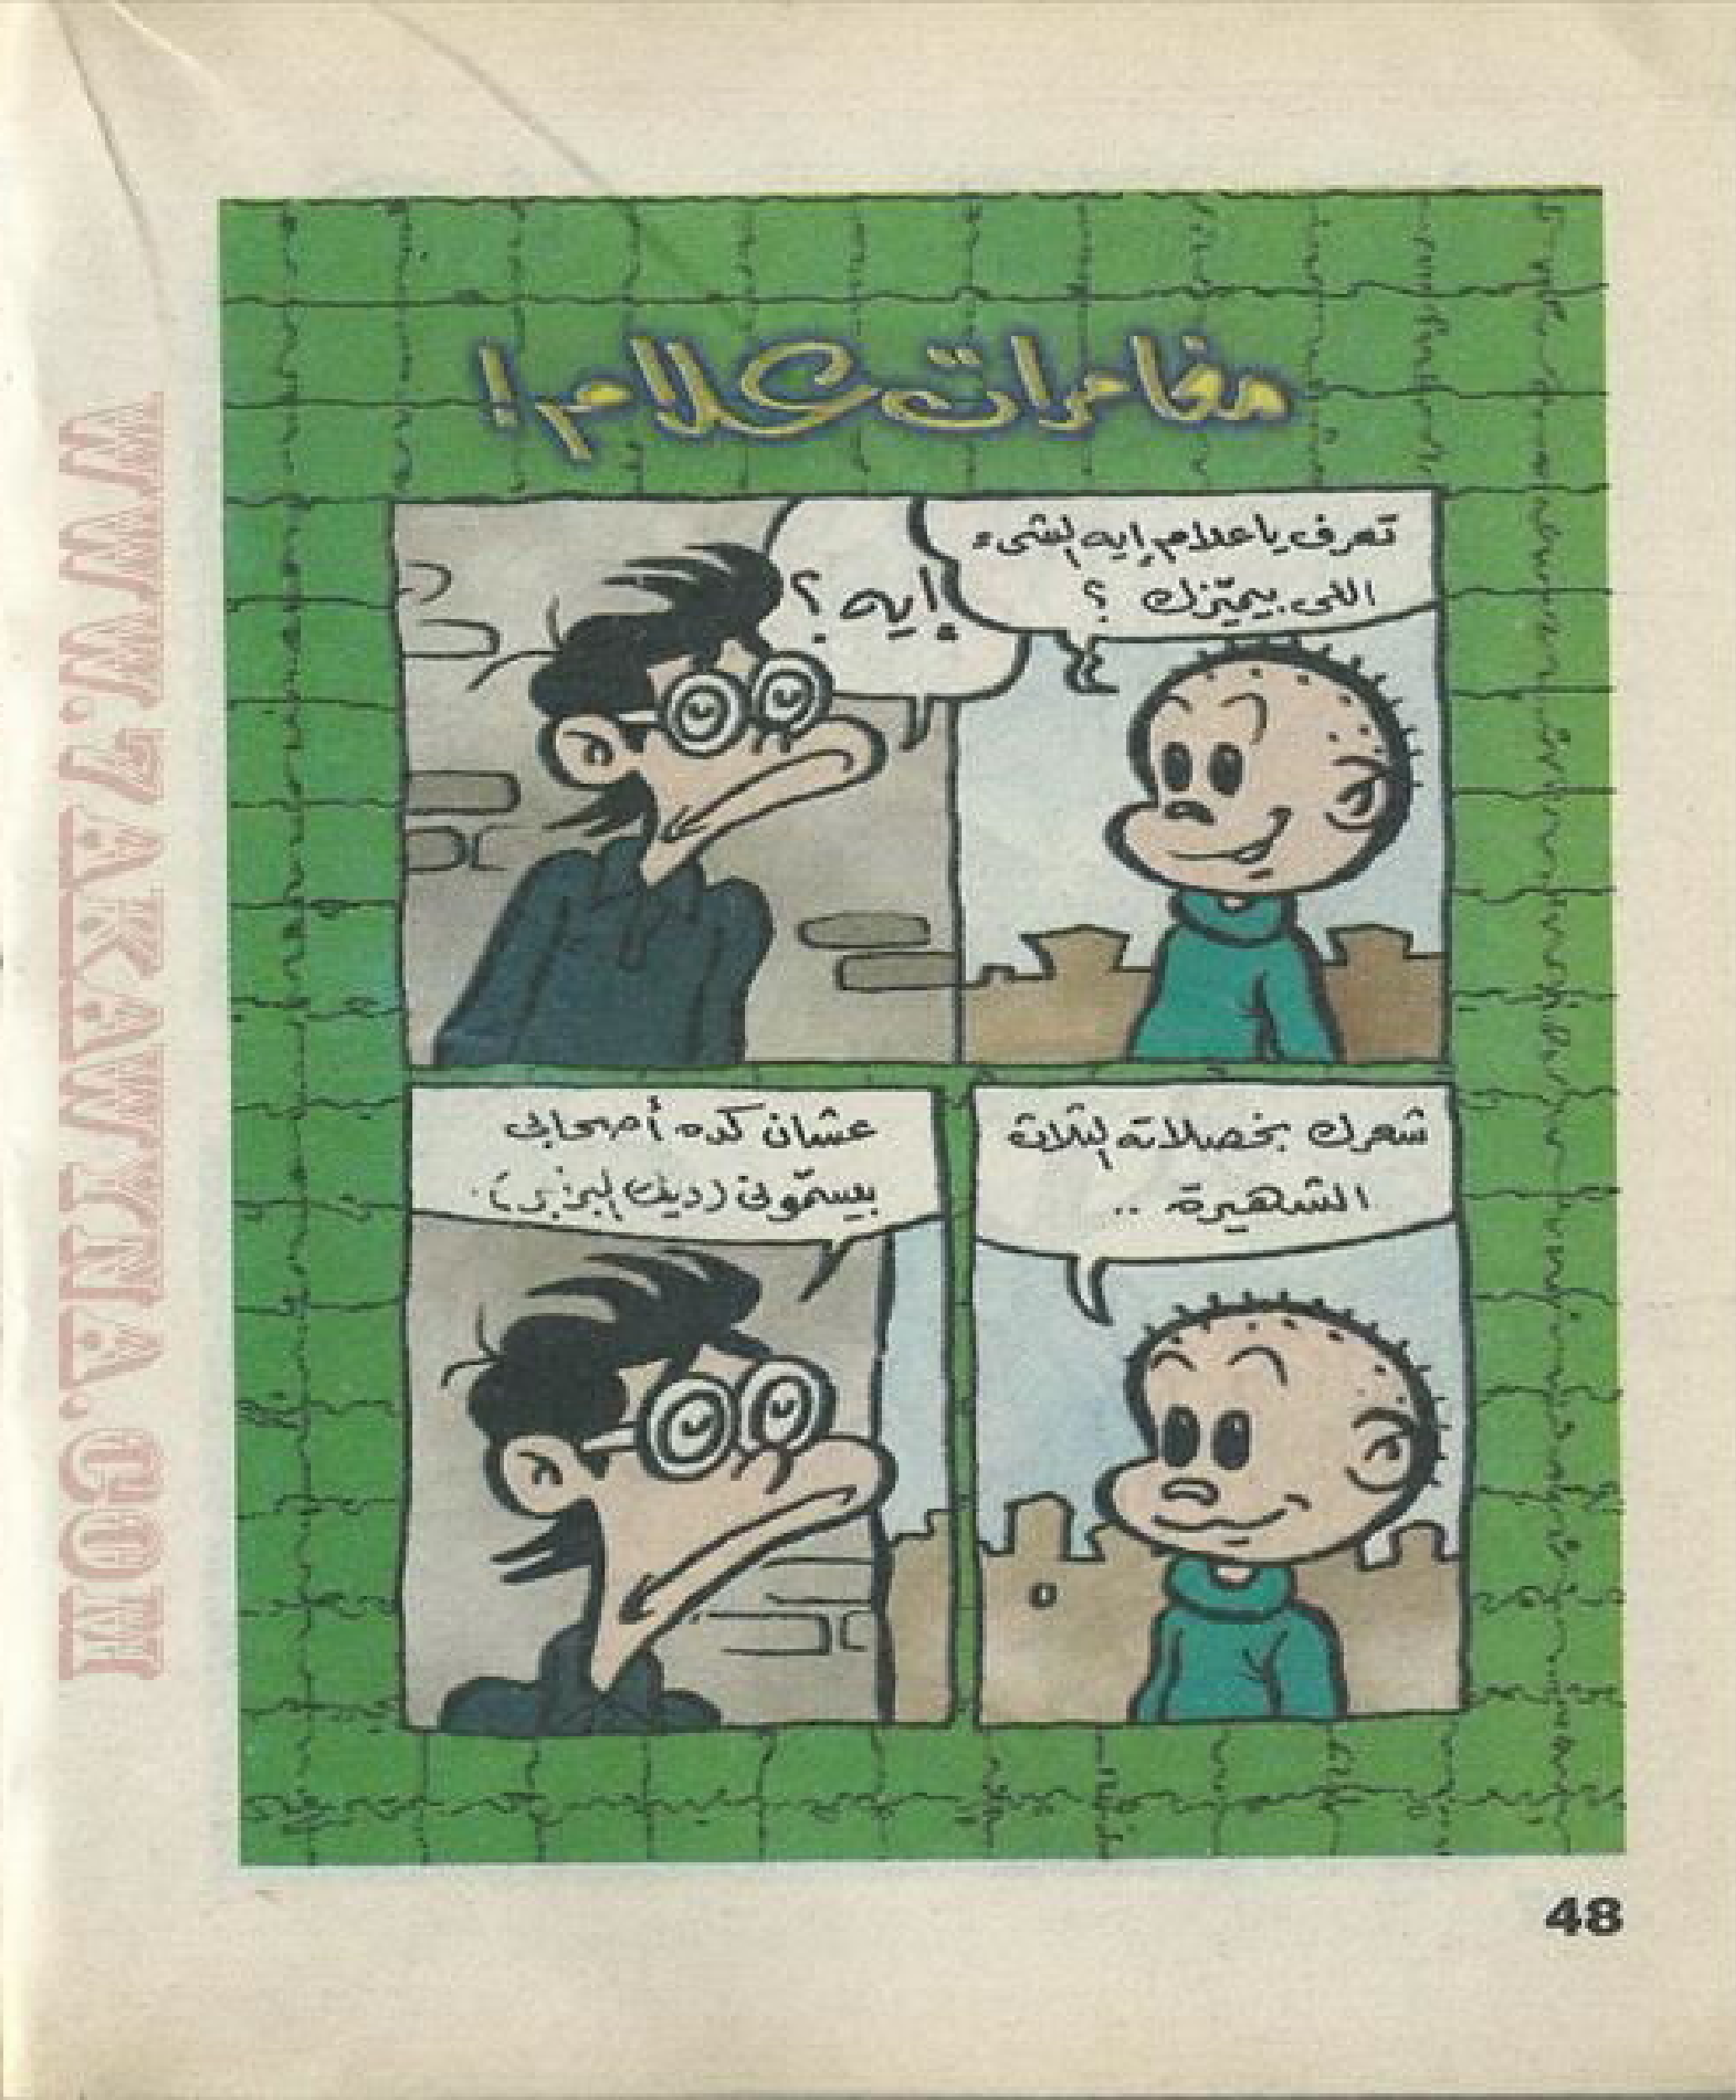 مغامرات علام!
تعرف يا علام إيه الشىء
اللى بيميّزك ؟
إيه ؟
شعرك بخصلاته التلات
الشهيرة ..
عشان كده أصحابى
بيسمّونى (ديك البرابر).
48
WWW.7AKAWITNA.COM